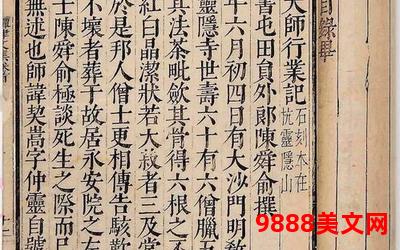 目錄畢
大師行業記 石刻本在
杭靈隱山
書屯田員外郎陳舜俞撰
年六月初四日有大沙門明敎
靈隱寺世壽六十有六僧臘
其法茶毗斂其骨得六根之不
紅白晶潔狀若大菽者三及常
於是邦人僧士更相傳告駭歎
不壞者葬于故居永安院之左
士陳舜俞極談死生之際而已
無述也師諱契嵩字仲靈自號
9888美文网